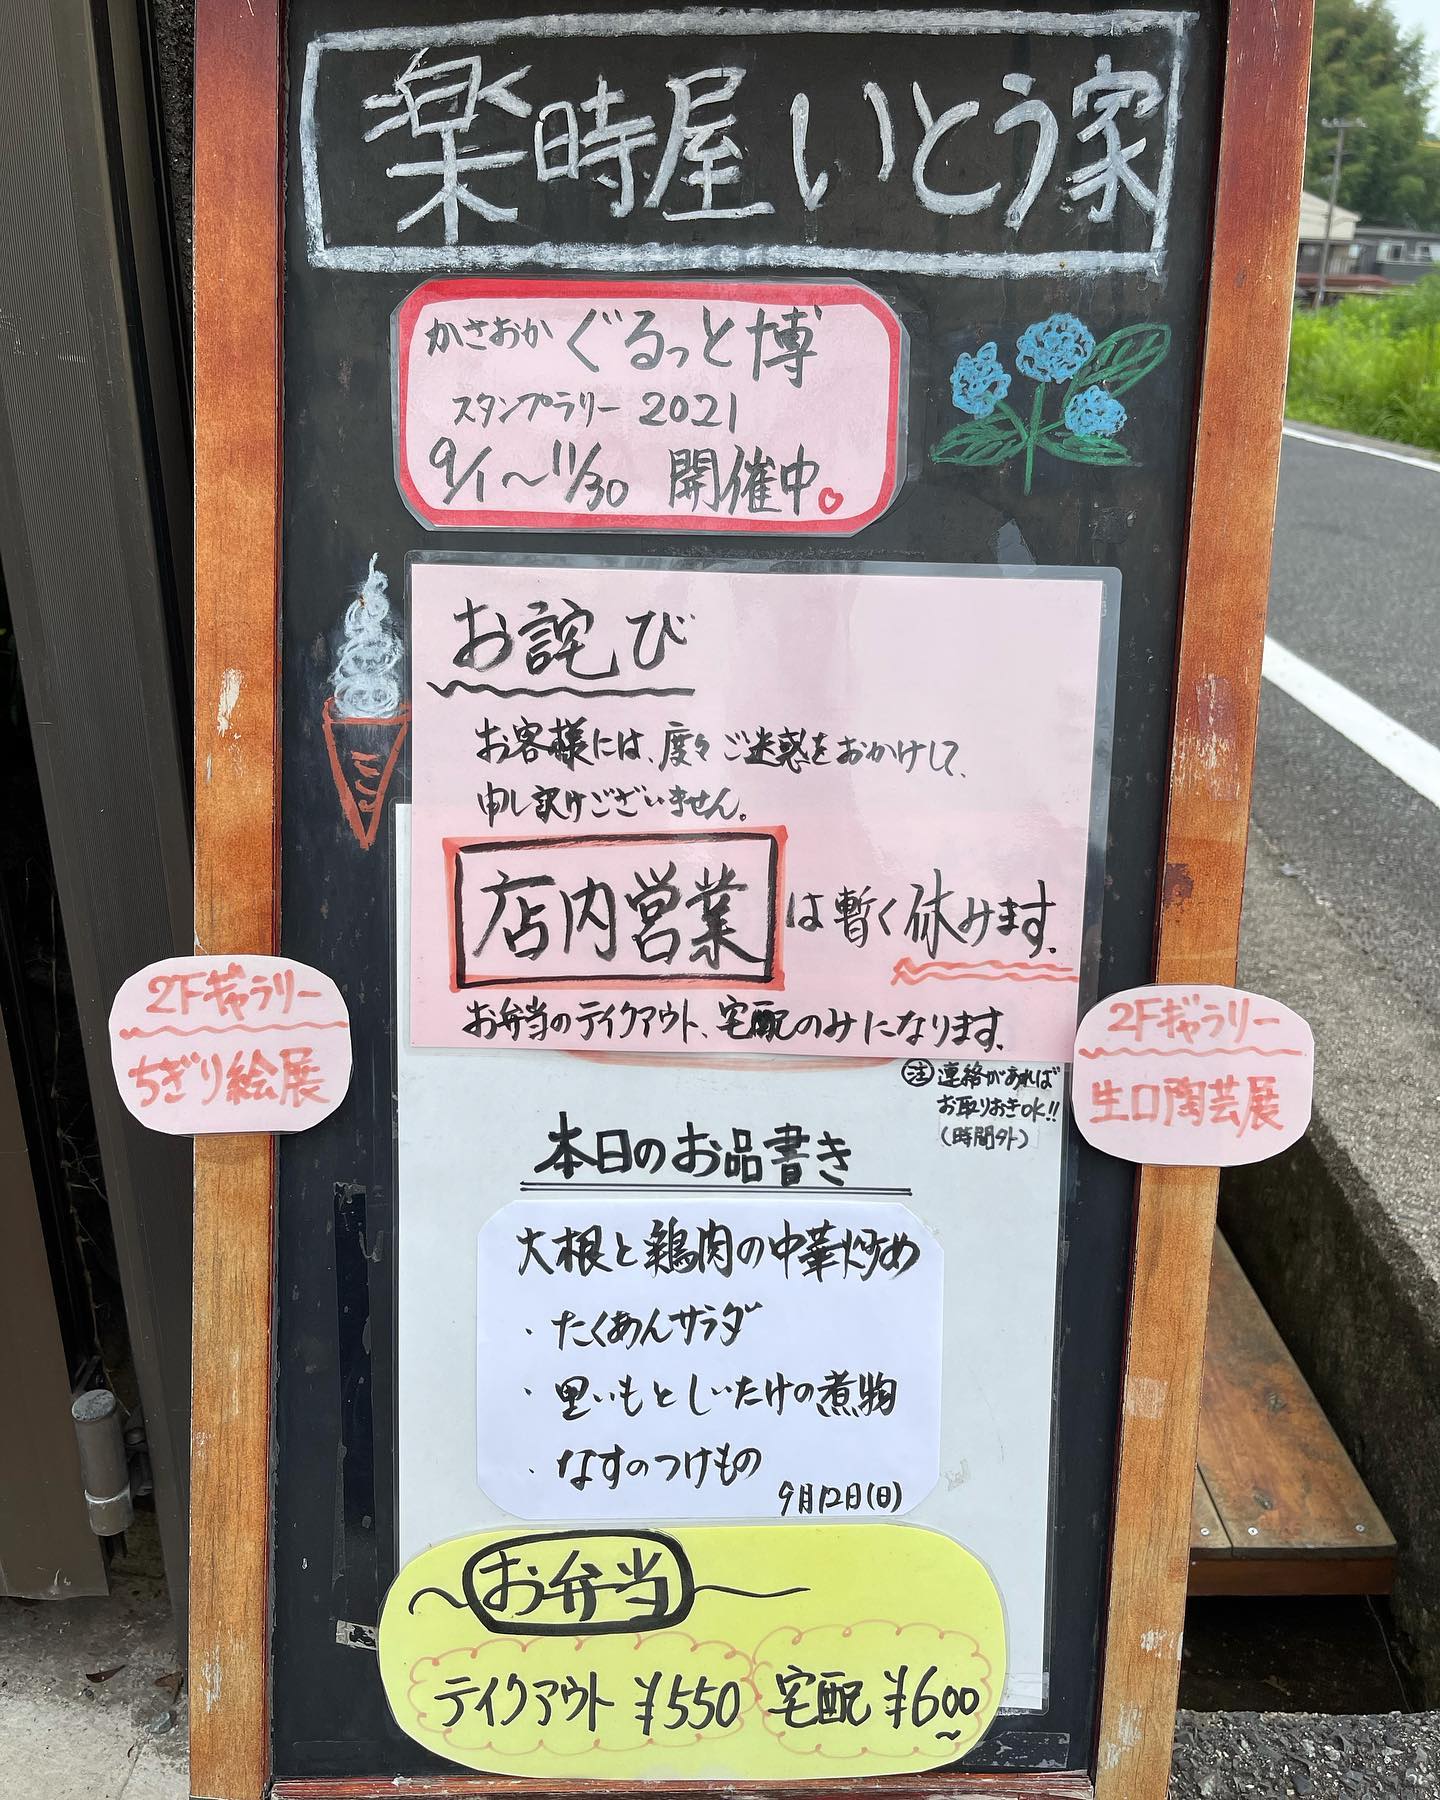 楽時屋 いとう家
かさおか ぐるっと博
スタンプラリー 2021
9/1〜11/30 開催中。
お詫び
お客様には、度々ご迷惑をおかけして、
申し訳けございません。
店内営業は暫く休みます。
お弁当のテイクアウト、宅配のみになります。
2Fギャラリー
ちぎり絵展
2Fギャラリー
生口陶芸展
注 連絡があれば
お取りおきOK!!
(時間外)
本日のお品書き
大根と鶏肉の中華炒め
・たくあんサラダ
・里いもとしいたけの煮物
・なすのつけもの
9月12日(日)
お弁当
テイクアウト ¥550 宅配 ¥600